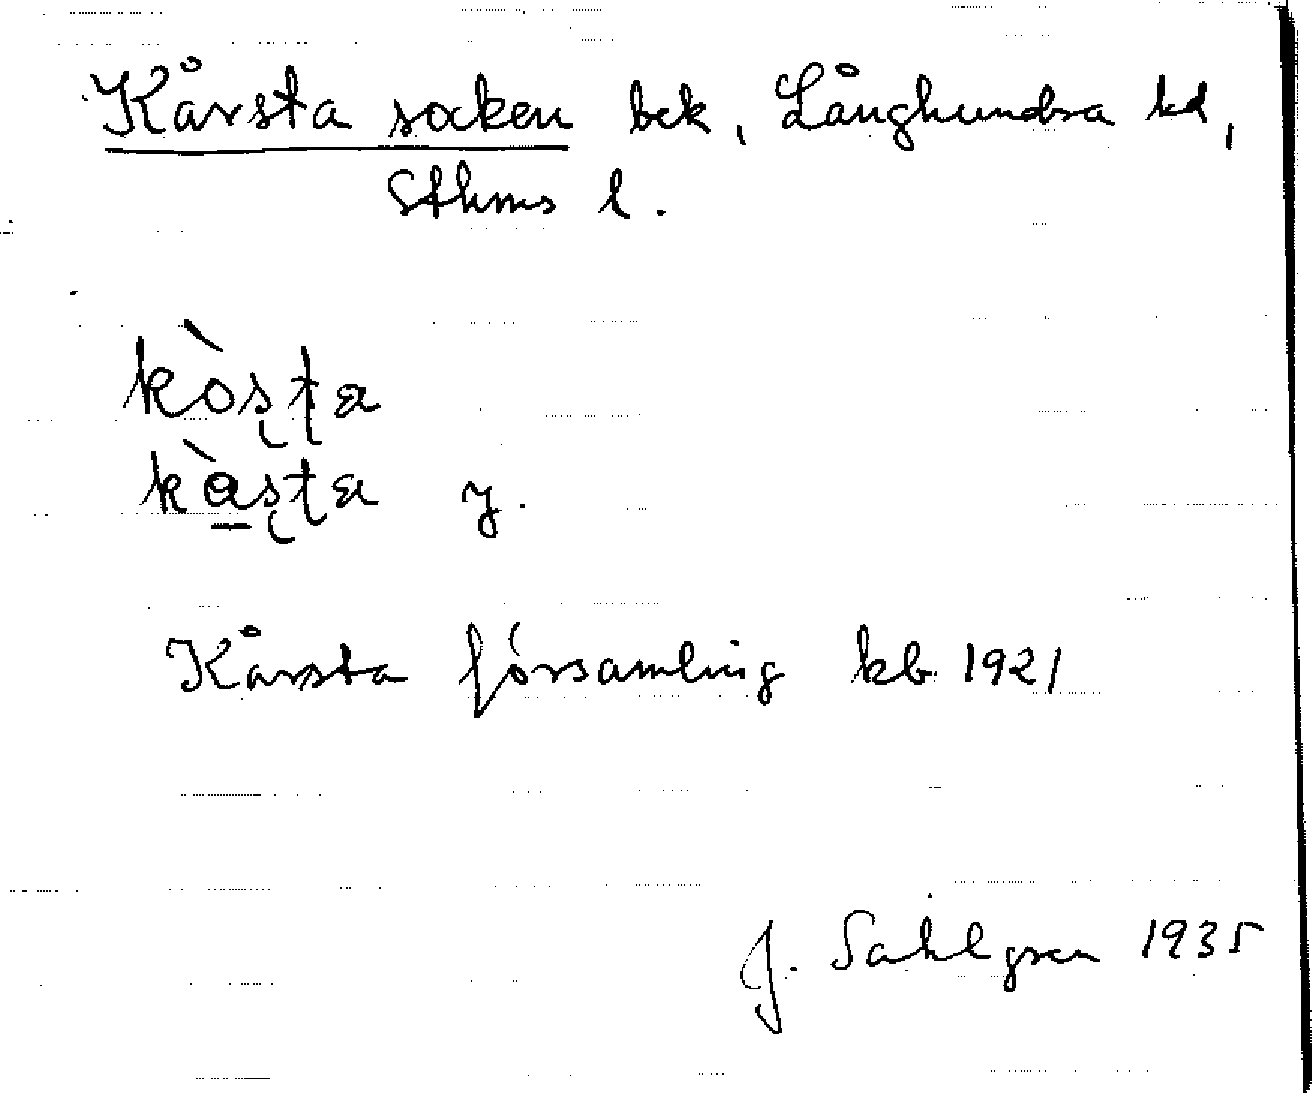 Kårsta socken bek, Långhundra hd,
Sthms l.
kòṣṭa
kàṣṭa y.
Kårsta församling kb 1921
J. Sahlgren 1935